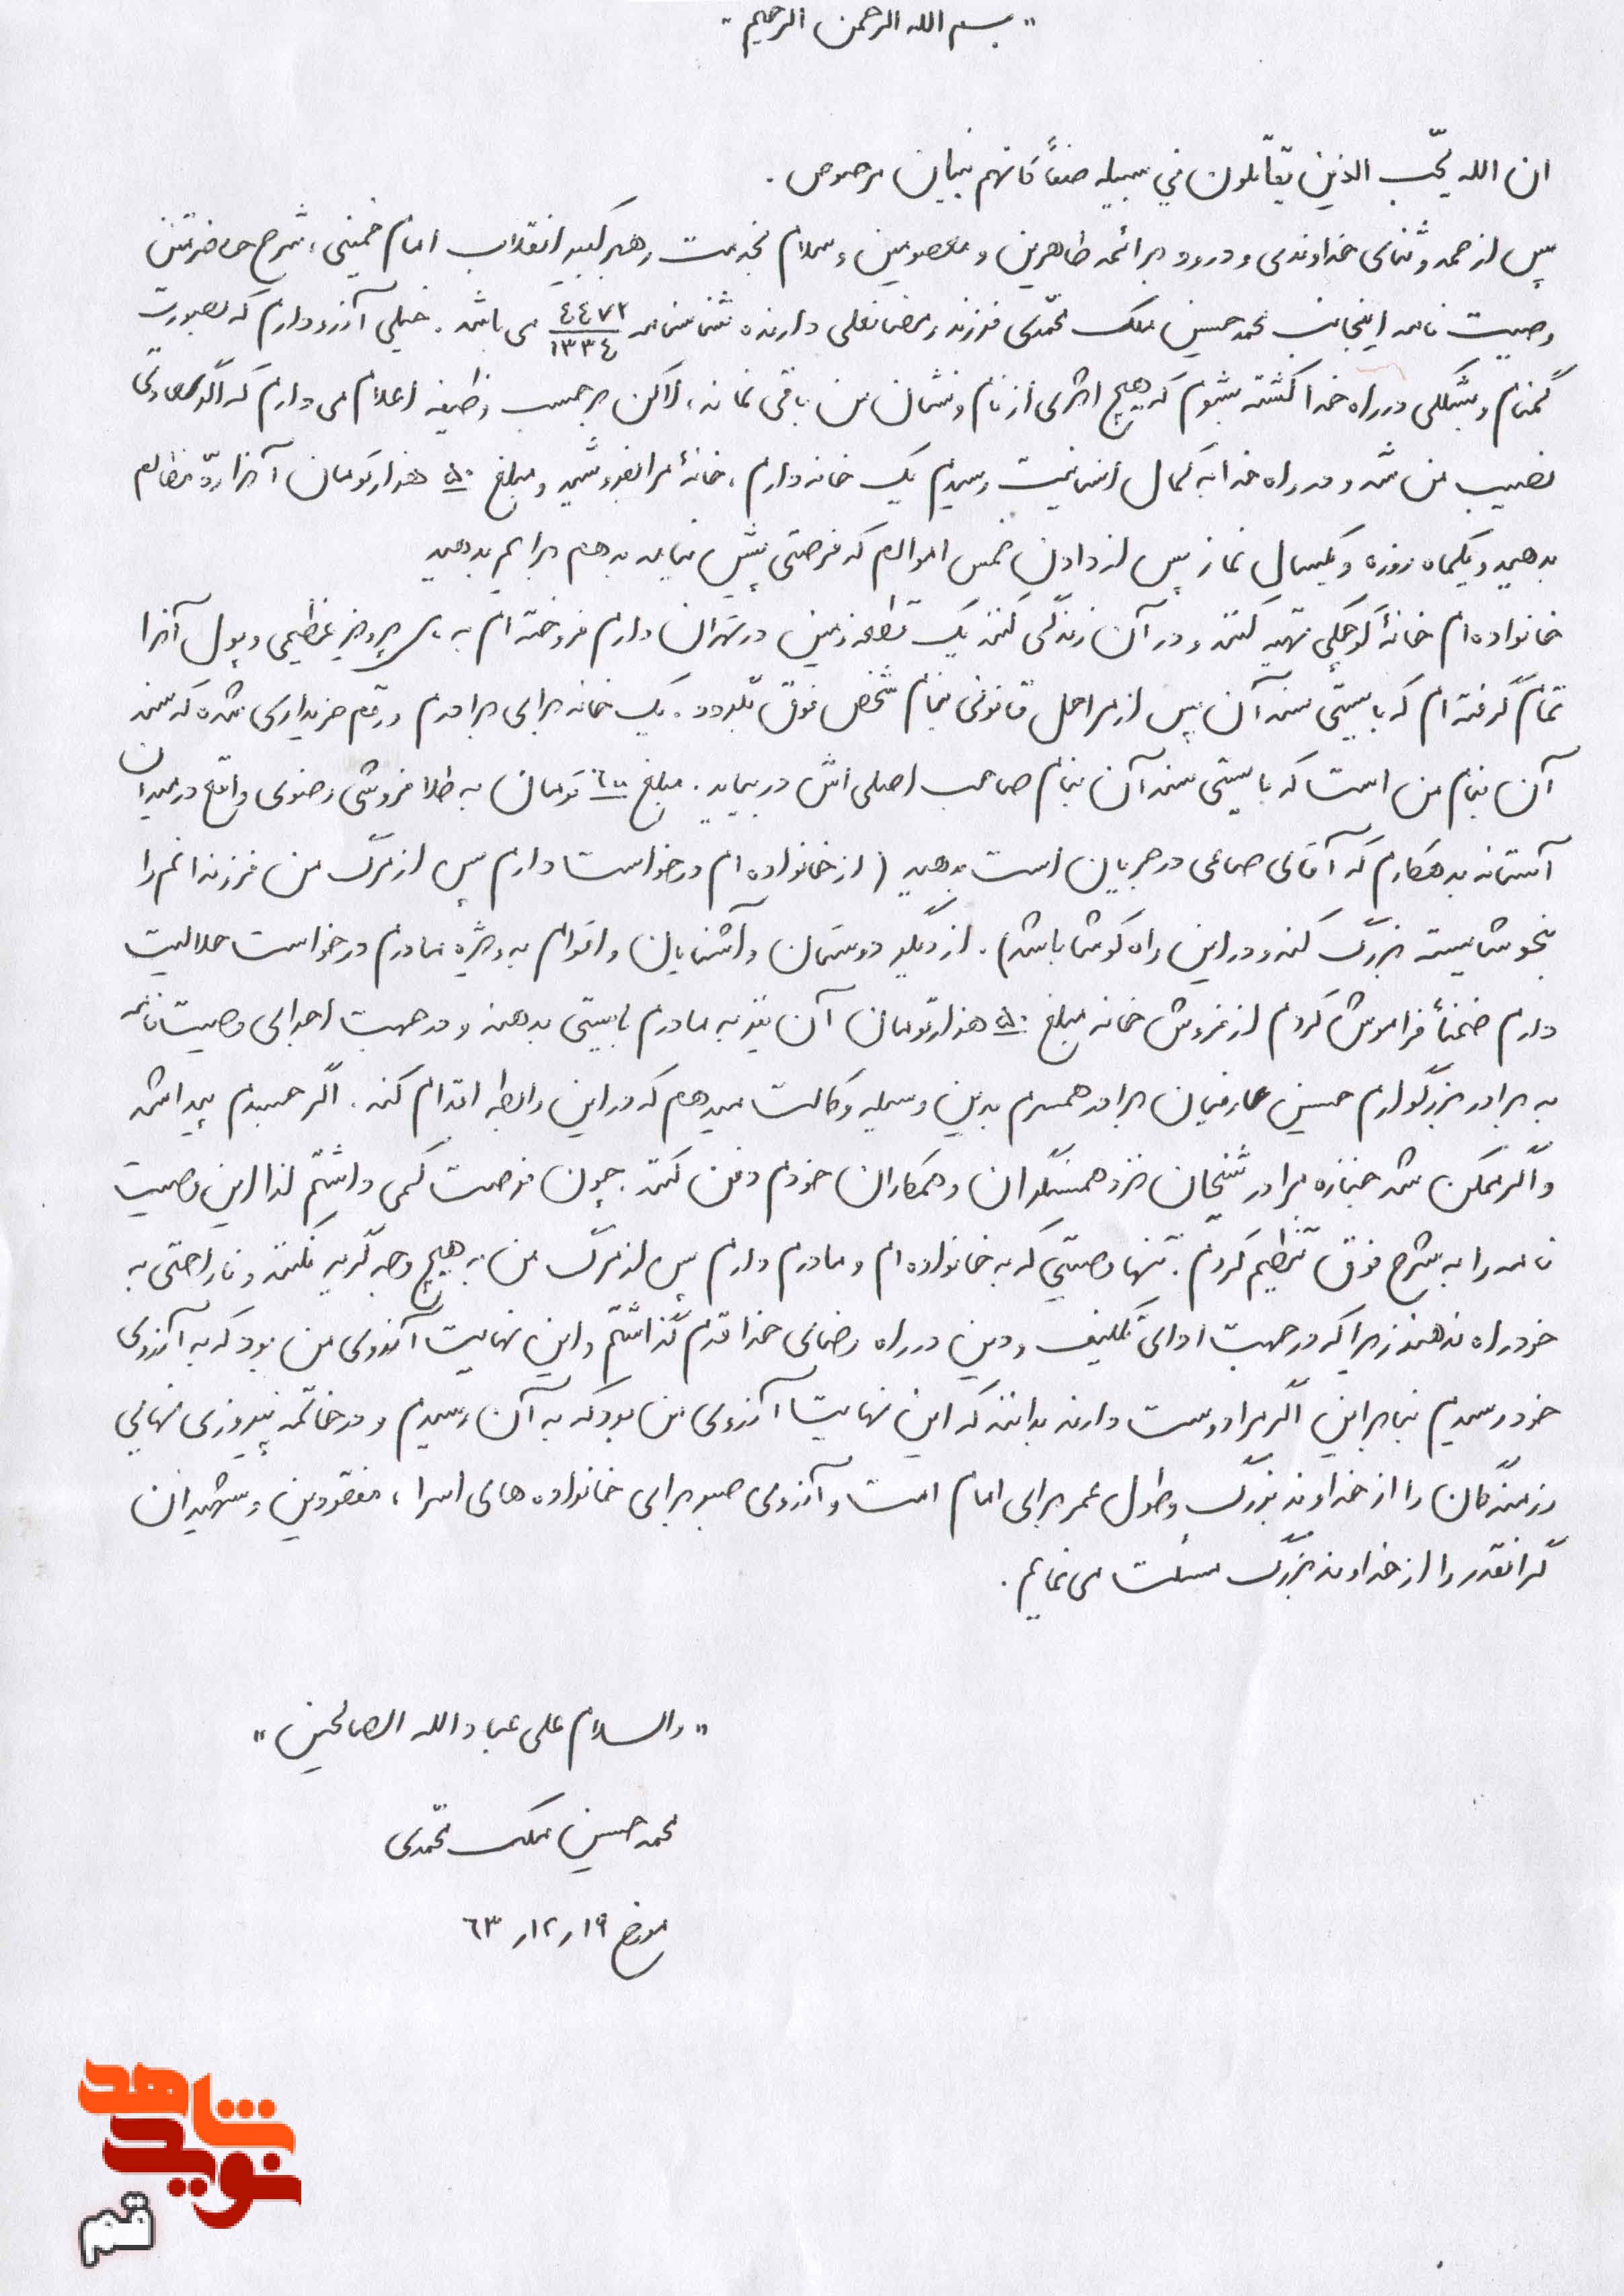 " بسم الله الرحمن الرحیم "
ان الله یحّب الذین یقاتلون فی سبیله صفاً کانهم بنیان مرصوص .
پس از حمد و ثنای خداوندی و درود بر ائمه طاهرین و معصومین و سلام بخدمت رهبر کبیر انقلاب امام خمینی ، شرح حاضر متن
وصیت نامه اینجانب محمد حسین ملک محمّدی فرزند رمضانعلی دارنده شناسنامه ٤٤٧٢/١٣٣٤ می باشد . خیلی آرزو دارم که بصورت
گمنام و بشکلی در راه خدا کشته بشوم که هیچ اثری از نام و نشان من باقی نماند ، لاکن بر حسب وظیفه اعلام می دارم که اگر سعادتی
نصیب من شد و در راه خدا به کمال انسانیت رسیدم یک خانه دارم ، خانهٔ مرا بفروشید و مبلغ ۵۰ هزار تومان آنرا ردّ مظالم
بدهید و یکماه روزه و یکسال نماز پس از دادن خمس اموالم که فرصتی پیش نیامد بدهم برایم بدهید
خانواده ام خانهٔ کوچکی تهیه کنند و در آن زندگی کنند یک قطعه زمین در تهران دارم فروخته ام به پرویز عظیمی و پول آنرا
تمام گرفته ام که بایستی سند آن پس از مراحل قانونی بنام شخص فوق بگردد . یک خانه برای برادرم در قم خریداری شده که سند
آن بنام من است که بایستی سند آن بنام صاحب اصلی اش در بیاید . مبلغ تومان به طلا فروشی رضوی واقع در میدان
آستانه بدهکارم که آقای صماعی در جریان است بدهید ( از خانواده ام درخواست دارم پس از مرگ من فرزندانم را
بنحو شایسته بزرگ کند و در این راه کوشا باشد ) . از دیگر دوستان و آشنایان و اقوام به ویژه مادرم درخواست حلالیت
دارم ضمناً فراموش کردم از فروش خانه مبلغ ۵۰ هزار تومان آن نیز به مادرم بایستی بدهند و در جهت اجرای وصیت نامه
به برادر بزرگوارم حسین عارفیان برادر همسرم بدین وسیله وکالت میدهم که در این رابطه اقدام کند . اگر جسدم پیدا شد
و اگر ممکن شد جنازه مرا در شیخان نزد همسنگران و همکاران خودم دفن کنند . چون فرصت کمی داشتم لذا این وصیت
نامه را به شرح فوق تنظیم کردم . تنها وصیّتی که به خانواده ام و مادرم دارم پس از مرگ من به هیچ وجه گریه نکنند و ناراحتی به
خود راه ندهند زیرا که در جهت ادای تکلیف و دین در راه رضای خدا قدم گذاشتم و این نهایت آرزوی من بود که به آرزوی
خود رسیدم بنابراین اگر مرا دوست دارند بدانند که این نهایت آرزوی من بود که به آن رسیدم و در خاتمه پیروزی نهایی
رزمندگان را از خداوند بزرگ و طول عمر برای امام امت و آرزوی صبر برای خانواده های اسرا ، مفقودین و شهیدان
گرانقدر را از خداوند بزرگ مسئلت می نمایم .
" والسلام علی عباد الله الصالحین "
محمد حسین ملک محمّدی
مورخ ١٩ ر ١٢ ر ٦٣
شاهد
نوید
قم